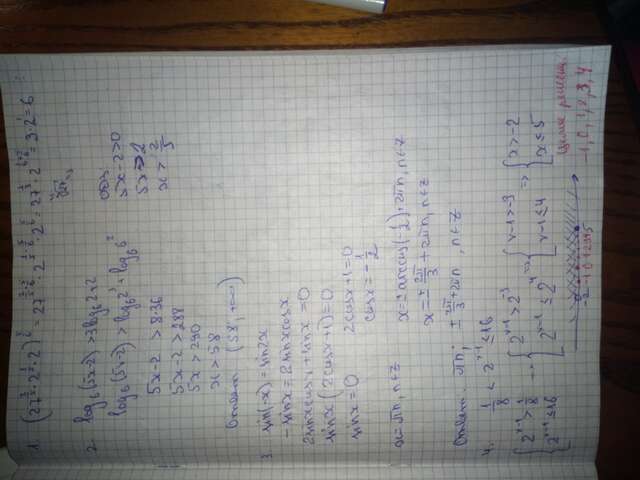 1. (27^{1/3·2}·2^{1/2·2})^{} = 27^{1/3}·2 = 3·2 = 6
2. log₆(5x-2) > 3log₆2+2
log₆(5x-2) > log₆2³ + log₆6²
5x-2 > 8·36
5x-2 > 288
5x > 290
x > 58
Ответ: (58; +∞)
ОДЗ:
5x-2>0
5x>2
x > 2/5
3. sin(-x) = sin2x
-sinx = 2sinxcosx
2sinxcosx + sinx = 0
sinx(2cosx+1)=0
sinx=0 2cosx+1=0
cosx = -1/2
x=πn, n∈z x=±arccos(-1/2)+2πn, n∈z
x=±2π/3+2πn, n∈z
Ответ: πn; ±2π/3+2πn, n∈z
4. 1/8 < 2^{x-1} ≤ 16
{2^{x-1} > 1/8 → {2^{x-1} > 2^{-3} → {x-1 > -3 → {x > -2
{2^{x-1} ≤ 16 {2^{x-1} ≤ 2^4 {x-1 ≤ 4 {x ≤ 5
-2 -1 0 1 2 3 4 5
Целые решения:
-1, 0, 1, 2, 3, 4